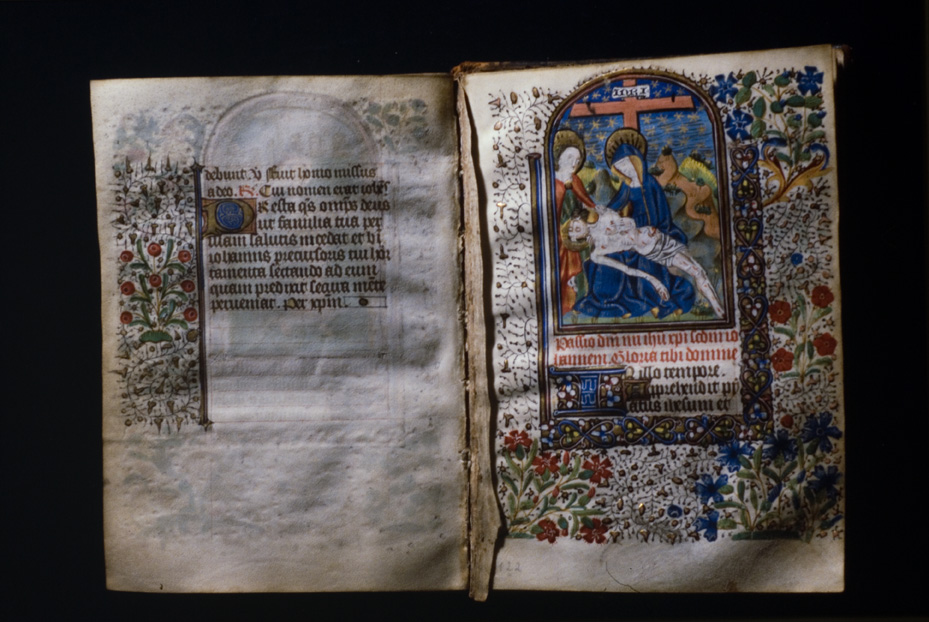 debunt. V̄ Fuit homo missus
a deo. R. Cui nomen erat iohēs
PResta q̄s omp̄s deus
ut familia tua per
uiam salutis incedat et bt̄i
iohannis precursoris tui hor
tamenta sectando ad eum
quem predixit secura
perueniat. Per xp̄m.
INRI
Passio dn̄i nr̄i ihū xp̄i scdm̄ io
hannem. Gloria tibi domine
IN illo tempore.
Apprehendit py
latus iesum et
122